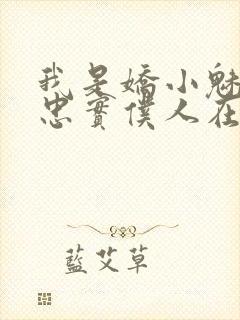 我是嬌小魅
忠實僕人在
藍艾草